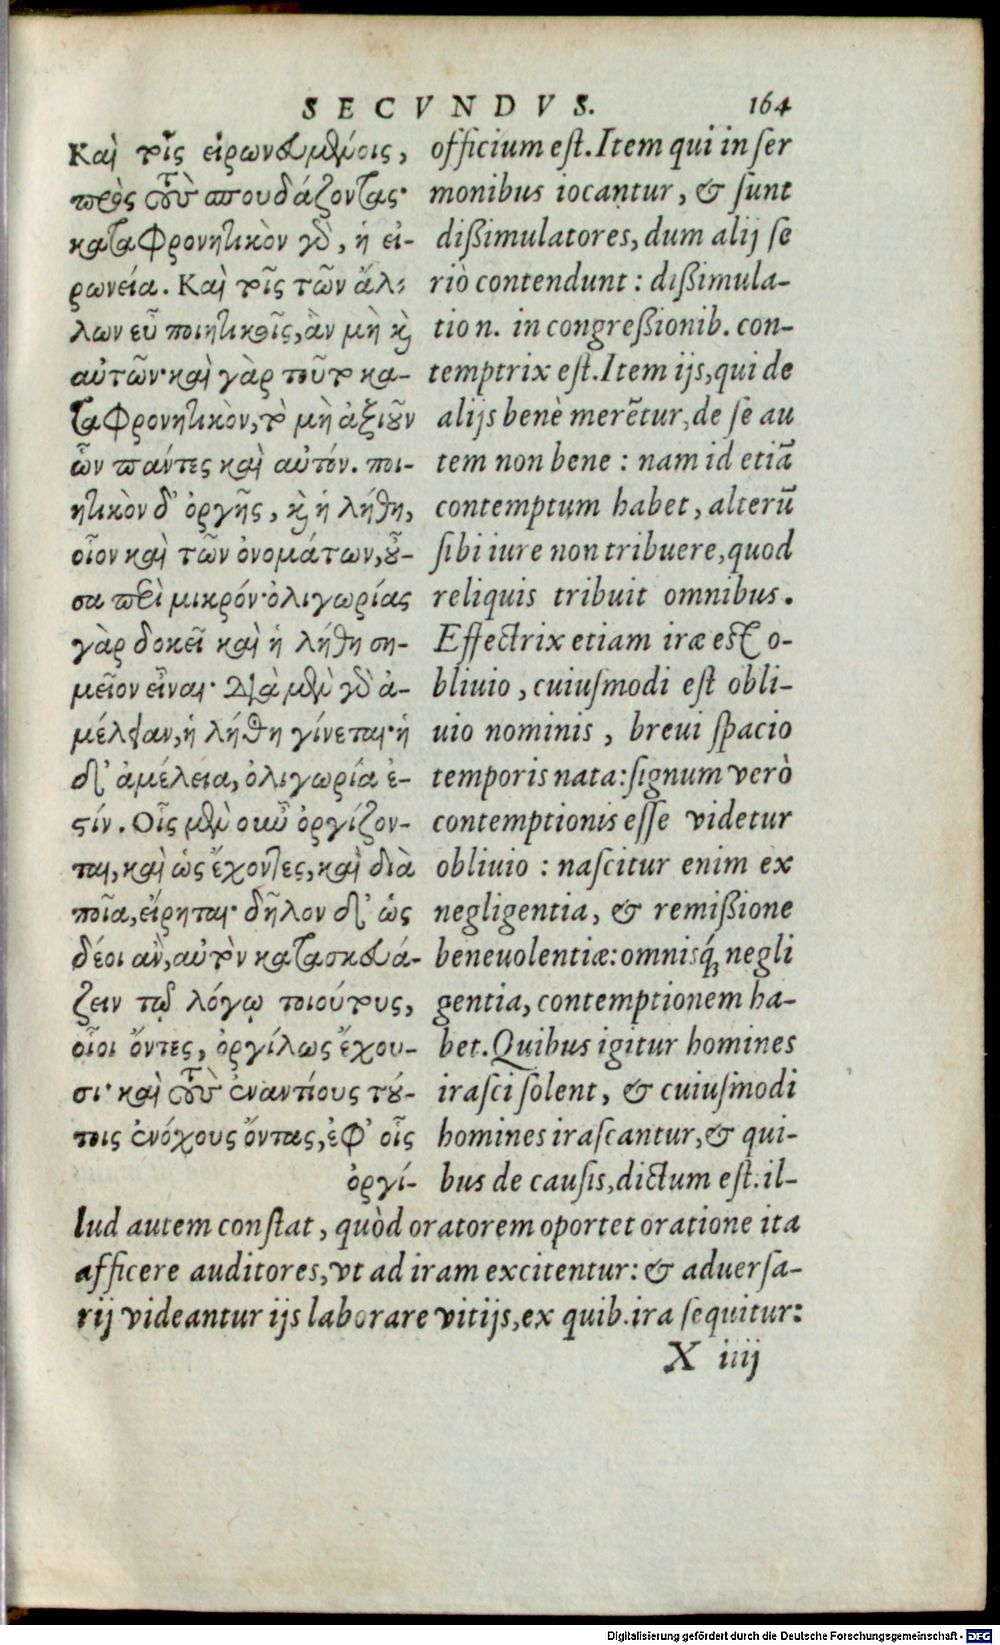 SECVNDVS. 164
Καὶ τοῖς εἰρωνευομένοις,
πρὸς τοὺς σπουδάζοντας·
καταφρονητικὸν γὰρ, ἡ εἰ-
ρωνεία. Καὶ τοῖς τῶν ἄλ-
λων εὖ ποιητικοῖς, ἂν μὴ καὶ
αὐτῶν· καὶ γὰρ τοῦτο κα-
ταφρονητικὸν, τὸ μὴ ἀξιοῦν
ὧν πάντες καὶ αὐτόν. ποι-
ητικὸν δ' ὀργῆς, καὶ ἡ λήθη,
οἷον καὶ τῶν ὀνομάτων, οὖ-
σα περὶ μικρόν· ὀλιγωρίας
γὰρ δοκεῖ καὶ ἡ λήθη ση-
μεῖον εἶναι· διὰ μὲν γὰρ ἀ-
μέλειαν, ἡ λήθη γίνεται· ἡ
δ' ἀμέλεια, ὀλιγωρία ἐ-
στίν. Οἷς μὲν οὖν ὀργίζον-
ται, καὶ ὡς ἔχοντες, καὶ διὰ
ποῖα, εἴρηται· δῆλον δ' ὡς
δέοι ἂν, αὐτὸν κατασκευά-
ζειν τῷ λόγῳ τοιούτους,
οἷοι ὄντες, ὀργίλως ἔχου-
σι· καὶ τοὺς ἐναντίους τού-
τοις ἐνόχους ὄντας, ἐφ' οἷς
ὀργί-
officium est. Item qui in ser
monibus iocantur, & sunt
dißimulatores, dum alij se
riò contendunt: dißimula-
tio n. in congreßionib. con-
temptrix est. Item ijs, qui de
alijs benè merẽtur, de se au
tem non bene: nam id etiã
contemptum habet, alterũ
sibi iure non tribuere, quod
reliquis tribuit omnibus.
Effectrix etiam iræ est o-
bliuio, cuiusmodi est obli-
uio nominis, breui spacio
temporis nata: signum verò
contemptionis esse videtur
obliuio: nascitur enim ex
negligentia, & remißione
beneuolentiæ: omnisq́; negli
gentia, contemptionem ha-
bet. Quibus igitur homines
irasci solent, & cuiusmodi
homines irascantur, & qui-
bus de causis, dictum est. il-
lud autem constat, quòd oratorem oportet oratione ita
afficere auditores, vt ad iram excitentur: & aduersa-
rij videantur ijs laborare vitijs, ex quib. ira sequitur:
X iiij
Digitalisierung gefördert durch die Deutsche Forschungsgemeinschaft - DFG